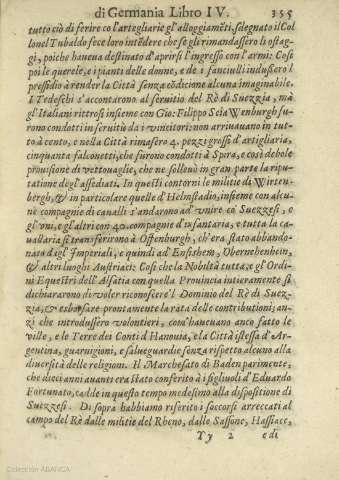 di Germania Libro IV. 355
tutto ciò di ferire co l'artegliarie gl'alloggiamẽti, sdegnato il Col
lonel Tubaldo fece loro intẽdere che se gli rimandassero li ostag-
gi, poiche haueva destinato d'aprirsi l'ingresso con l'armi: Cosi
poi le querele, e i pianti delle donne, e de i fanciulli indussero l
pressidio à render la Città senza cõdicione alcuna imaginabile.
I Tedeschi s'accontarono al seruitio del Rè di Suezzia, mà
gl'Italiani ritrosi insieme con Gio: Filippo Seia Wenburgh fu-
rono condotti in seruitù da i vincitori: non arriuauano in tut-
to à cento, e nella Città rimasero 4. pezzi grossi d'artigliaria,
cinquanta falconetti, che furono condotti à Spira, e cosi debole
prouisione di vettouaglie, che ne solleuò in gran parte la ripu-
tatione degl'assediati. In questi contorni le militie di Wirten-
bergh, & in particolare quelle d'Helmstadio, insieme con alcu-
ne compagnie di caualli s'andarono ad vnire co' Suezzesi, e
gl'vni, e gl'altri con 40. compagnie d'infantaria, e tutta la ca-
uallaria si transferirono à Offenburgh, ch'era stato abbando-
nato da gl'Imperiali, e quindi ad Ensishem, Obernehenheim,
& altri luoghi Austriaci: Cosi che la Nobiltà tutta, e gl'Ordi-
ni Equestri dell'Alsatia con quella Prouincia intieramente si
dichiararono di voler riconoscere'l Dominio del Rè di Suez-
zia, & esborsare prontamente la rata delle contributioni; an-
zi che introdussero volontieri, com'haueuano anco fatto le
ville, e le Terre dei Conti d'Hanouia, e la Città istessa d'Ar-
gentina, guarnigioni, e salueguardie senza rispetto alcuno alla
diuersità delle religioni. Il Marchesato di Baden parimente,
che dieci anni auanti era stato conferito à i figliuoli d'Eduardo
Fortunato, cadde in questo tempo medesimo alla dispositione di
Suezzesi. Di sopra habbiamo riferito i soccorsi arreccati al
campo del Rè dalle militie del Rheno, dalle Sassone, Hassiace,
Yy 2 edi
Colección ABANCA